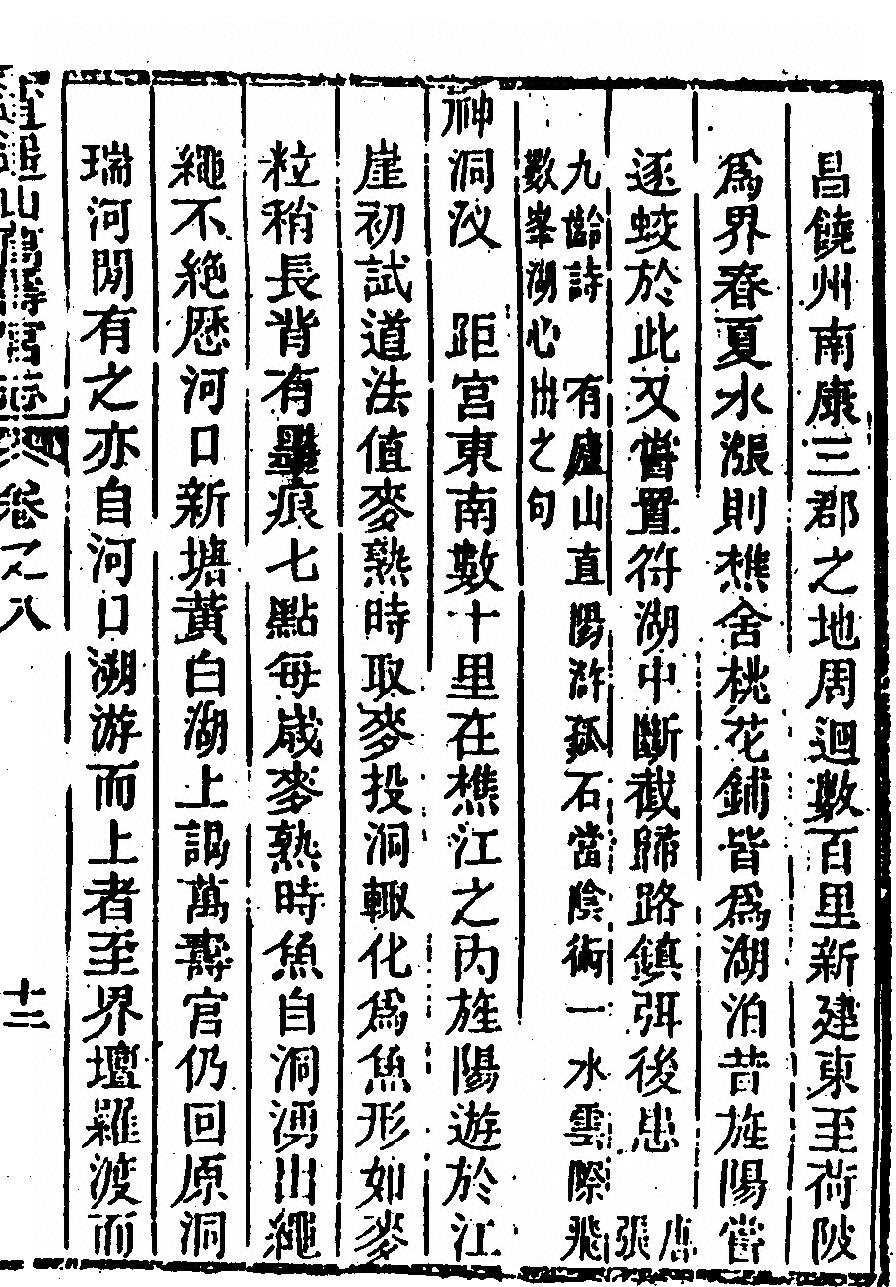 昌饒州南康三郡之地周迴數百里新建東至荷陂
爲界春夏水漲則樵舍桃花鋪皆爲湖泊昔旌陽嘗
逐蛟於此又嘗置符湖中斷截歸路鎮弭後患 唐張
九齡詩 有廬山直陽滸孤石當陰術一水雲際飛
數峯湖心出之句
神洞汊 距宮東南數十里在樵江之内旌陽遊於江
崖初試道法值麥熟時取麥投洞輙化爲魚形如麥
粒稍長背有墨痕七點每歲麥熟時魚自洞湧出繩
繩不絶歷河口新塘黃白湖上謁萬壽宮仍回原洞
瑞河閒有之亦自河口溯游而上者至界壇羅渡而
逍遥山萬壽宮志 卷之八 十二